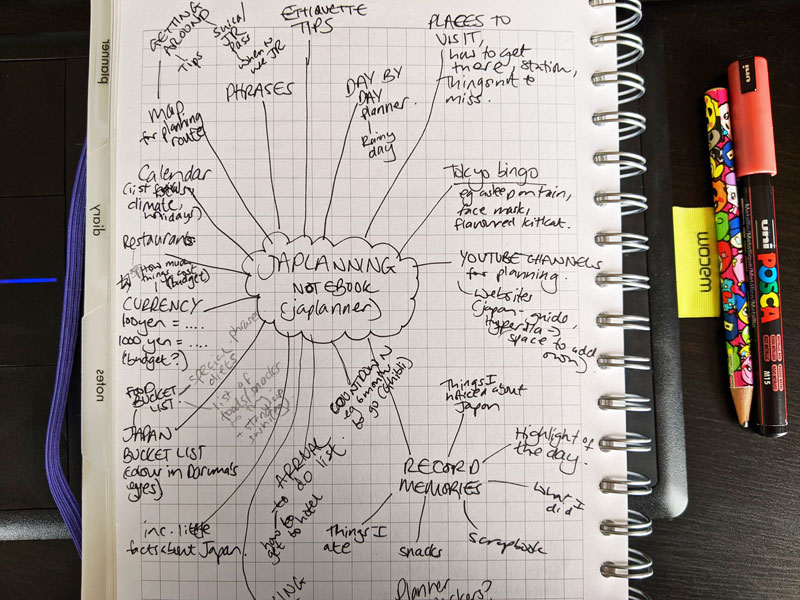 planner
diary
notes
GETTING
AROUND
Tips
Suica/
JR
Pass
when to
use JR
ETIQUETTE
TIPS
PLACES TO
VISIT,
how to get
there, station,
Things not to
miss.
PHRASES
DAY BY
DAY
planner.
Rainy
day
map
for planning
route
Calendar
(list
climate,
holidays)
Restaurants
how much
things cost
(budget)
CURRENCY
100 yen = ....
1000 yen = ....
(budget?)
FOOD
BUCKET
LIST.
special phrases
list of
JAPAN
BUCKET LIST
(colour in Daruma's
eyes)
inc. little
facts about Japan.
JAPLANNING
NOTEBOOK
(japlanner)
Tokyo bingo
eg asleep on train,
face mask,
flavoured kitkat.
YOUTUBE CHANNELS
for planning.
websites
space to add
own)
COUNTDOWN
eg 6 months
to go (ghibli)
ARRIVAL
to do list.
how to
get to hotel
RECORD
MEMORIES
Things I
noticed about
Japan
Highlight of
the day.
What I
did
scrapbook
snacks
Things I
ate
Planner
wacom
uni
uni
POSCA
M15